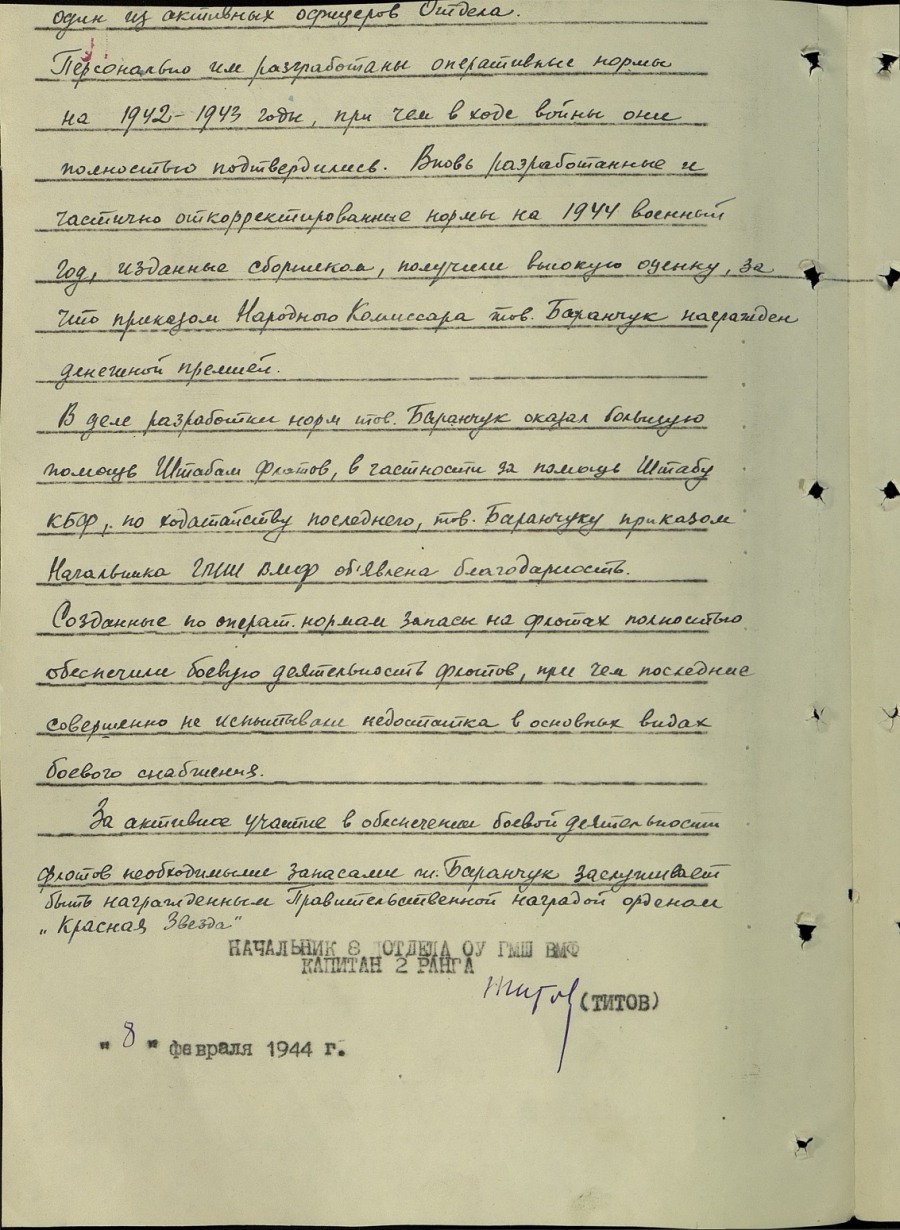 один из активных офицеров Отдела.
Персонально им разработаны оперативные нормы
на 1942-1943 годы, при чем в ходе войны они
полностью подтвердились. Вновь разработанные и
частично откорректированные нормы на 1944 военный
год, изданные сборником, получили высокую оценку, за
что приказом Народного Комиссара тов. Баранчук награжден
денежной премией.
В деле разработки норм тов. Баранчук оказал большую
помощь Штабам флотов, в частности за помощь Штабу
КБФ, по ходатайству последнего, тов. Баранчуку приказом
Начальника ГМШ ВМФ об'явлена благодарность.
Созданные по операт. нормам запасы на флотах полностью
обеспечили боевую деятельность флотов, при чем последние
совершенно не испытывали недостатка в основных видах
боевого снабжения.
За активное участие в обеспечении боевой деятельности
флотов необходимыми запасами т. Баранчук заслуживает
быть награжденным Правительственной наградой орденом
"Красная Звезда"
НАЧАЛЬНИК 8 ОТДЕЛА ОУ ГМШ ВМФ
КАПИТАН 2 РАНГА
Титов (ТИТОВ)
"8" февраля 1944 г.